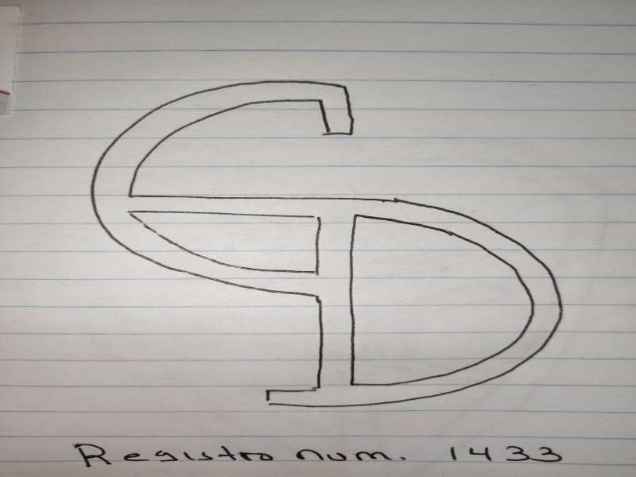 Registro num. 1433